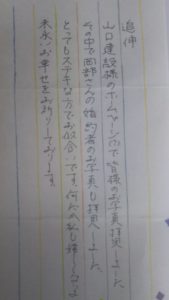 追伸
山口建設様のホームページで皆様のお写真拝見しました。
その中で岡部さんの婚約者のお写真も拝見しました。
とってもステキな方でお似合いです。何だか私も嬉しくなって
末永いお幸せをお祈りしております。